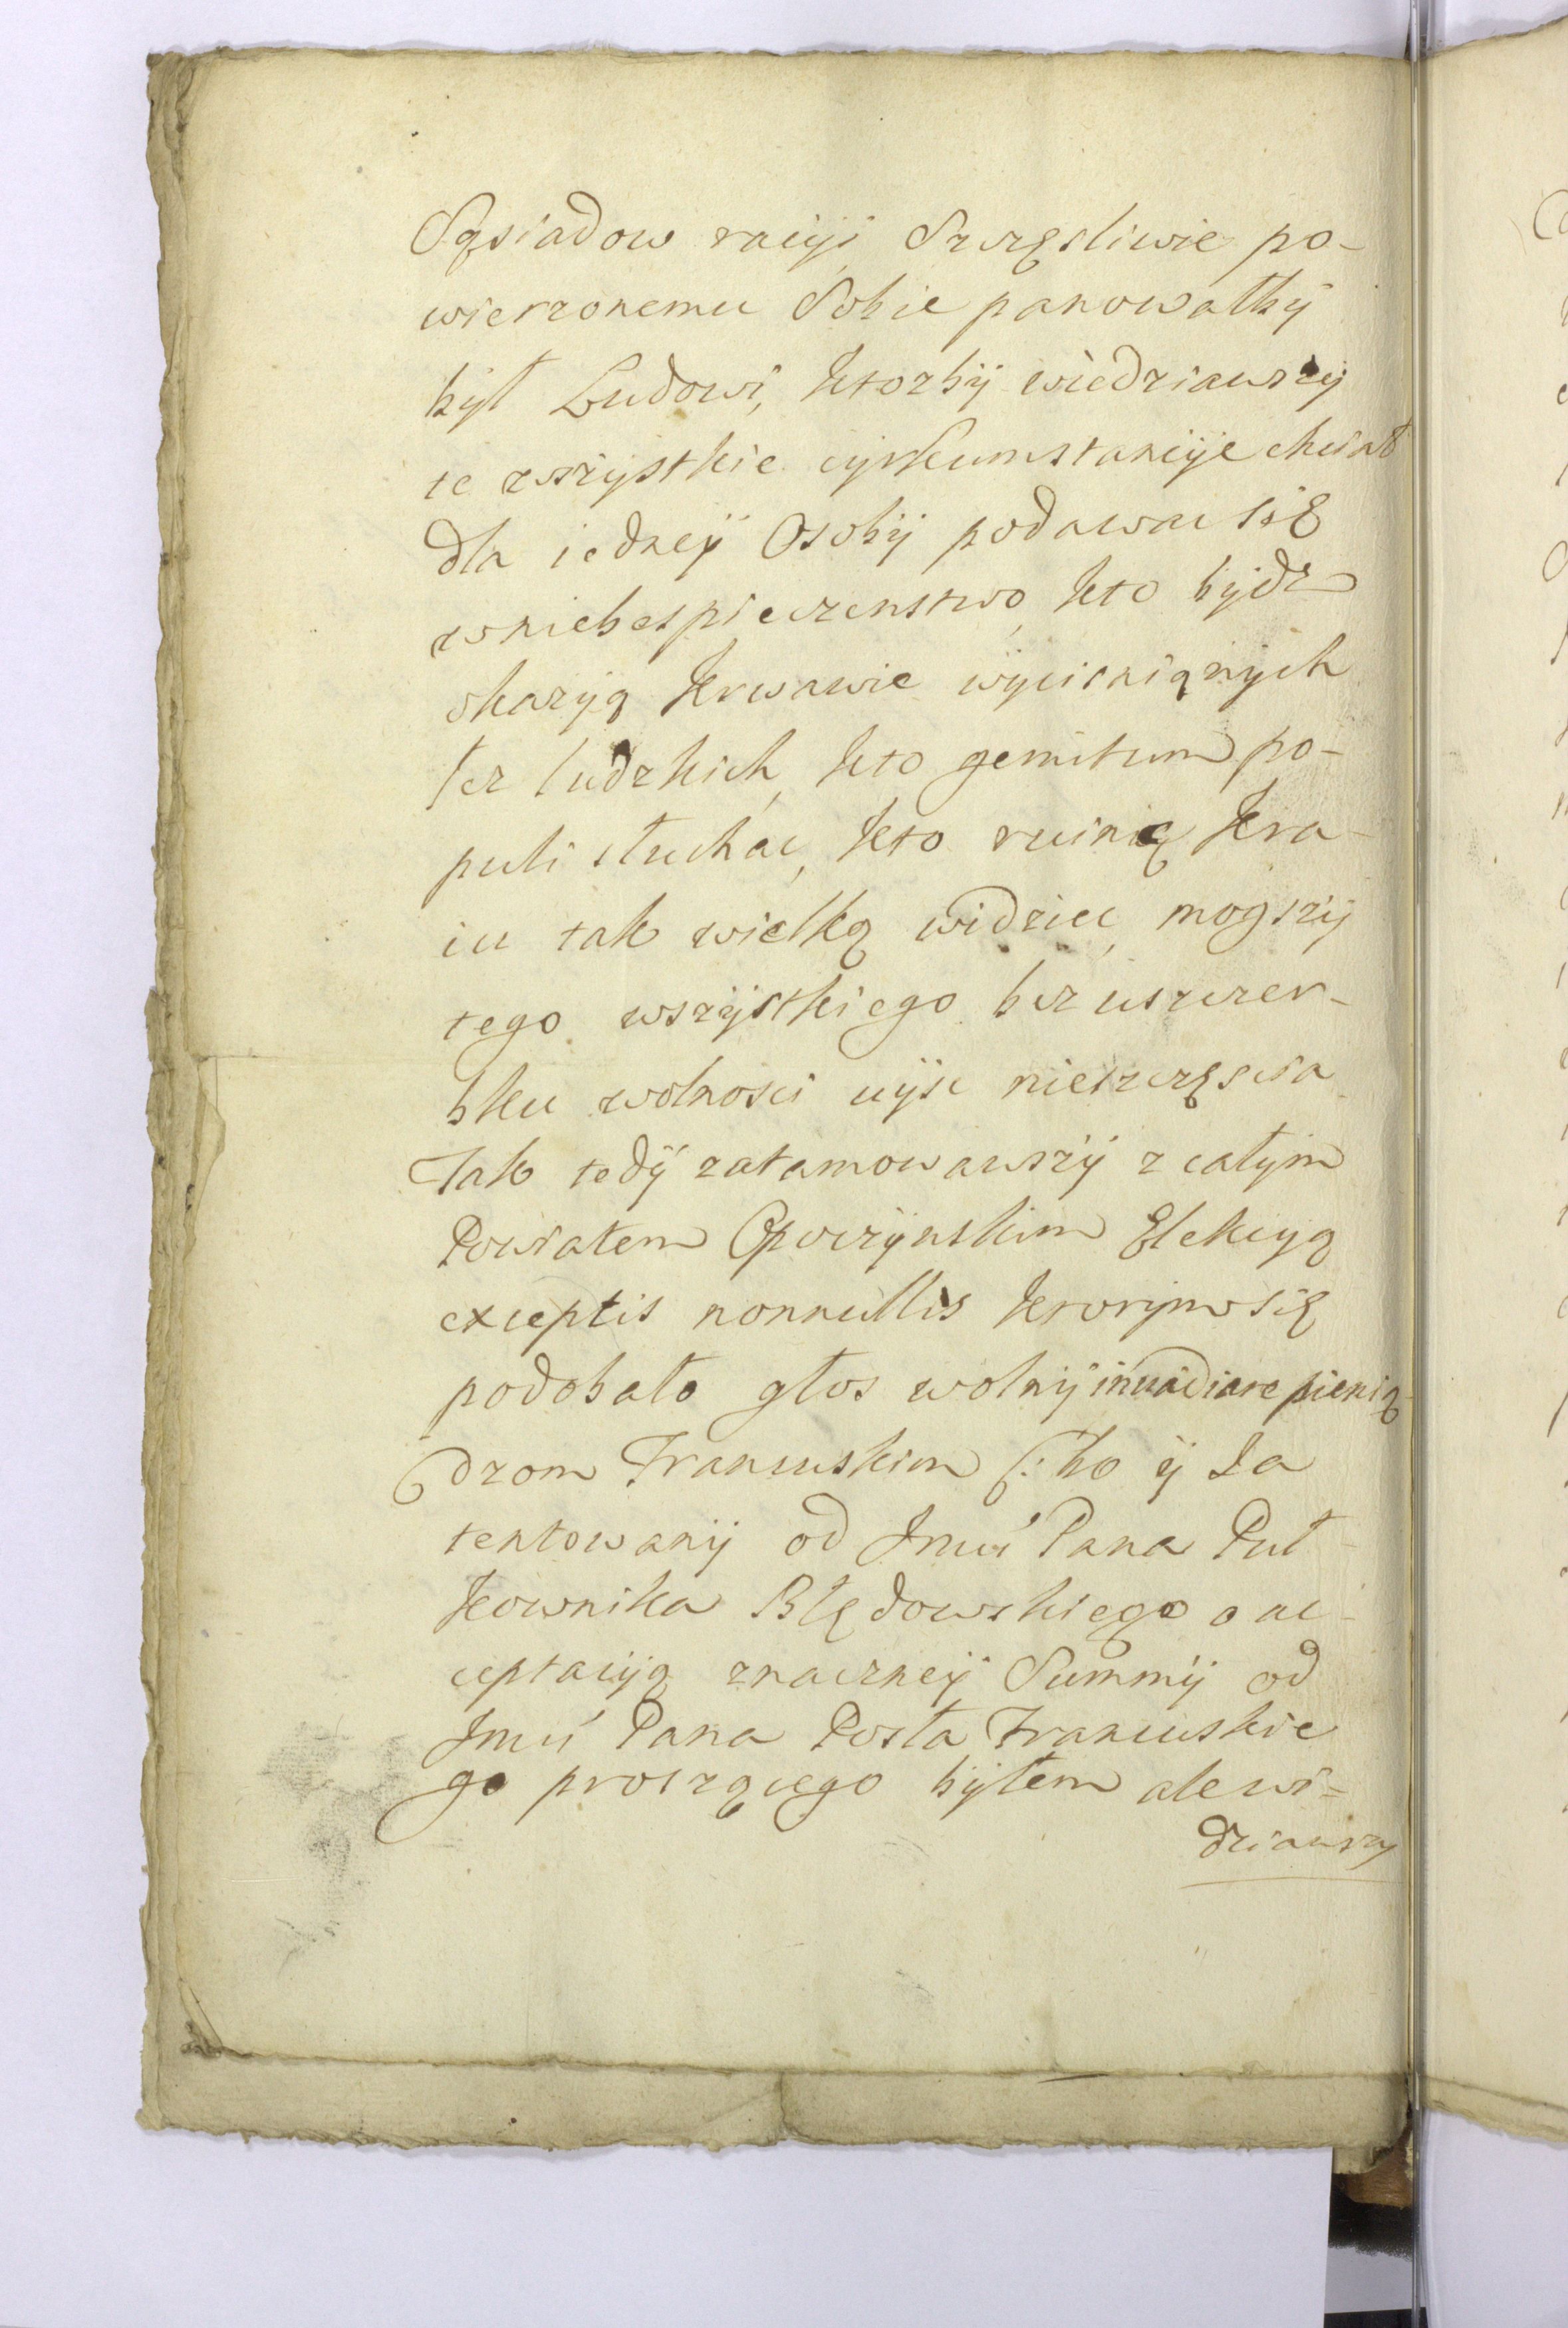 Sąsiadow racyi Szczęsliwie po-
wierzonemu Sobie panowałby
był Ludowi, ktozby wiedziawszy
te wszystkie cyrkumstancyje chciał
dla iedney Osoby podawac się
w niebespieczenstwo, kto bydz
okazyą krwawie wycisniąnych
łez ludzkich, kto gemitum po-
puli słuchac, kto ruinę Kra-
iu tak wielką widziec, mogszy
tego wszystkiego bez uszczer-
bku wolnosci uysc nieszczęscia
Tak tedy zatamowawszy z całym
Powiatem Opoczynskim Elekcyą
exceptis nonnullis ktorym się
podobało głos wolny invadiare pienią
dzom Francuskim /: bo y Ja
tentowany od Jmci Pana Puł-
kownika Błędowskiego o ac-
ceptacyą znaczney Summy od
Jmci Pana Posła Francuskie
go proszącego byłem ale wi=
dziawszy